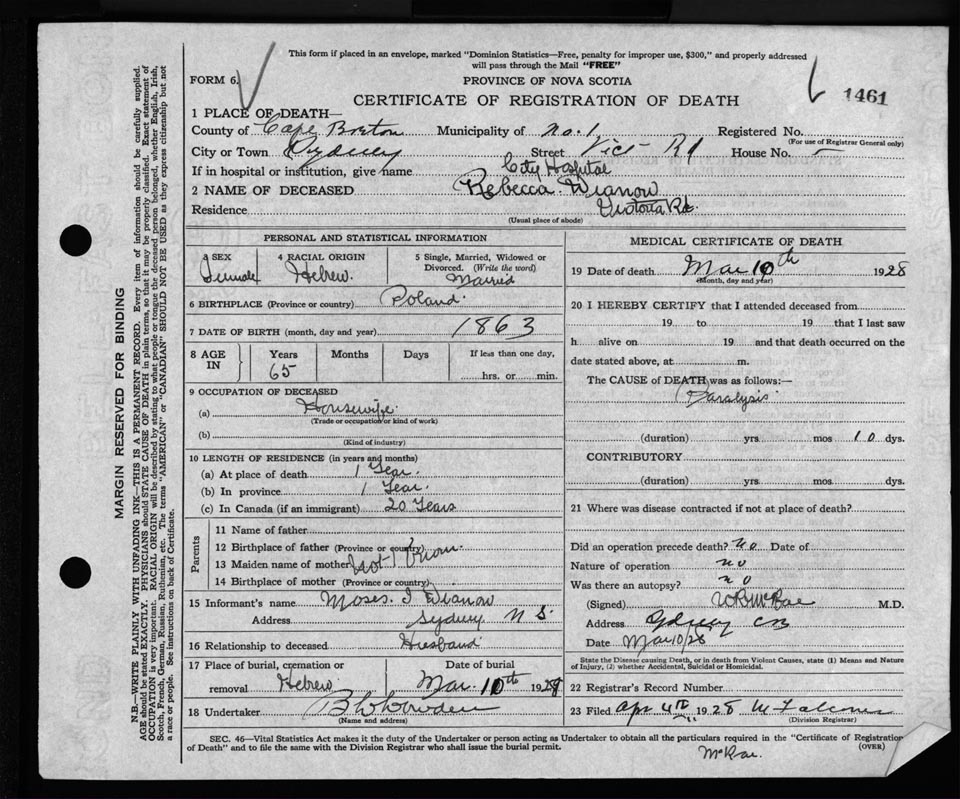 This form if placed in an envelope, marked "Dominion Statistics—Free, penalty for improper use, $300," and properly addressed
will pass through the Mail "FREE"
FORM 6.
PROVINCE OF NOVA SCOTIA
1461
CERTIFICATE OF REGISTRATION OF DEATH
1 PLACE OF DEATH—
County of Cape Breton Municipality of No. 1 Registered No.
(For use of Registrar General only)
City or Town Sydney Street Vict- Rd House No. -
If in hospital or institution, give name City Hospital
2 NAME OF DECEASED Rebecca Wianow
Residence Victoria Rd.
(Usual place of abode)
PERSONAL AND STATISTICAL INFORMATION
3 SEX 4 RACIAL ORIGIN 5 Single, Married, Widowed or
Divorced. (Write the word)
Female Hebrew. Married
6 BIRTHPLACE (Province or country) Poland.
7 DATE OF BIRTH (month, day and year) 1863
8 AGE IN Years Months Days If less than one day,
65 hrs. or min.
9 OCCUPATION OF DECEASED
(a) Housewife.
(Trade or occupation or kind of work)
(b)
(Kind of industry)
10 LENGTH OF RESIDENCE (in years and months)
(a) At place of death 1 Year.
(b) In province 1 Year.
(c) In Canada (if an immigrant) 20 Years
Parents
11 Name of father
12 Birthplace of father (Province or country)
13 Maiden name of mother Not Known
14 Birthplace of mother (Province or country)
15 Informant's name Moses. I Wianow
Address Sydney N S.
16 Relationship to deceased Husband
17 Place of burial, cremation or Date of burial
removal Hebrew Mar. 10th 1928
18 Undertaker
(Name and address)
MEDICAL CERTIFICATE OF DEATH
19 Date of death Mar 10th 1928
(Month, day and year)
20 I HEREBY CERTIFY that I attended deceased from
19 to 19 that I last saw
h alive on 19 and that death occurred on the
date stated above, at m.
The CAUSE of DEATH was as follows:—
Paralysis
(duration) yrs. mos 10 dys.
CONTRIBUTORY
(duration) yrs. mos. dys.
21 Where was disease contracted if not at place of death?
Did an operation precede death? No Date of
Nature of operation no
Was there an autopsy? no
(Signed) McRae M.D.
Address Sydney CB
Date Mar 10/28
State the Disease causing Death, or in death from Violent Causes, state (1) Means and Nature
of Injury, (2) whether Accidental, Suicidal or Homicidal.
22 Registrar's Record Number
23 Filed Apr 4th 1928
(Division Registrar)
SEC. 46—Vital Statistics Act makes it the duty of the Undertaker or person acting as Undertaker to obtain all the particulars required in the "Certificate of Registration
of Death" and to file the same with the Division Registrar who shall issue the burial permit.
(OVER)
McRae.
MARGIN RESERVED FOR BINDING
N.B.—WRITE PLAINLY WITH UNFADING INK—THIS IS A PERMANENT RECORD. Every item of information should be carefully supplied.
AGE should be stated EXACTLY. PHYSICIANS should STATE CAUSE OF DEATH in plain terms, so that it may be properly classified. Exact statement of
OCCUPATION is very important. RACIAL ORIGIN will be described by stating to what people or tongue the deceased person belonged, whether English, Irish,
Scotch, French, German, Russian, Ruthenian, etc. The terms "AMERICAN" or "CANADIAN" SHOULD NOT BE USED as they express citizenship but not
a race or people. See instructions on back of Certificate.